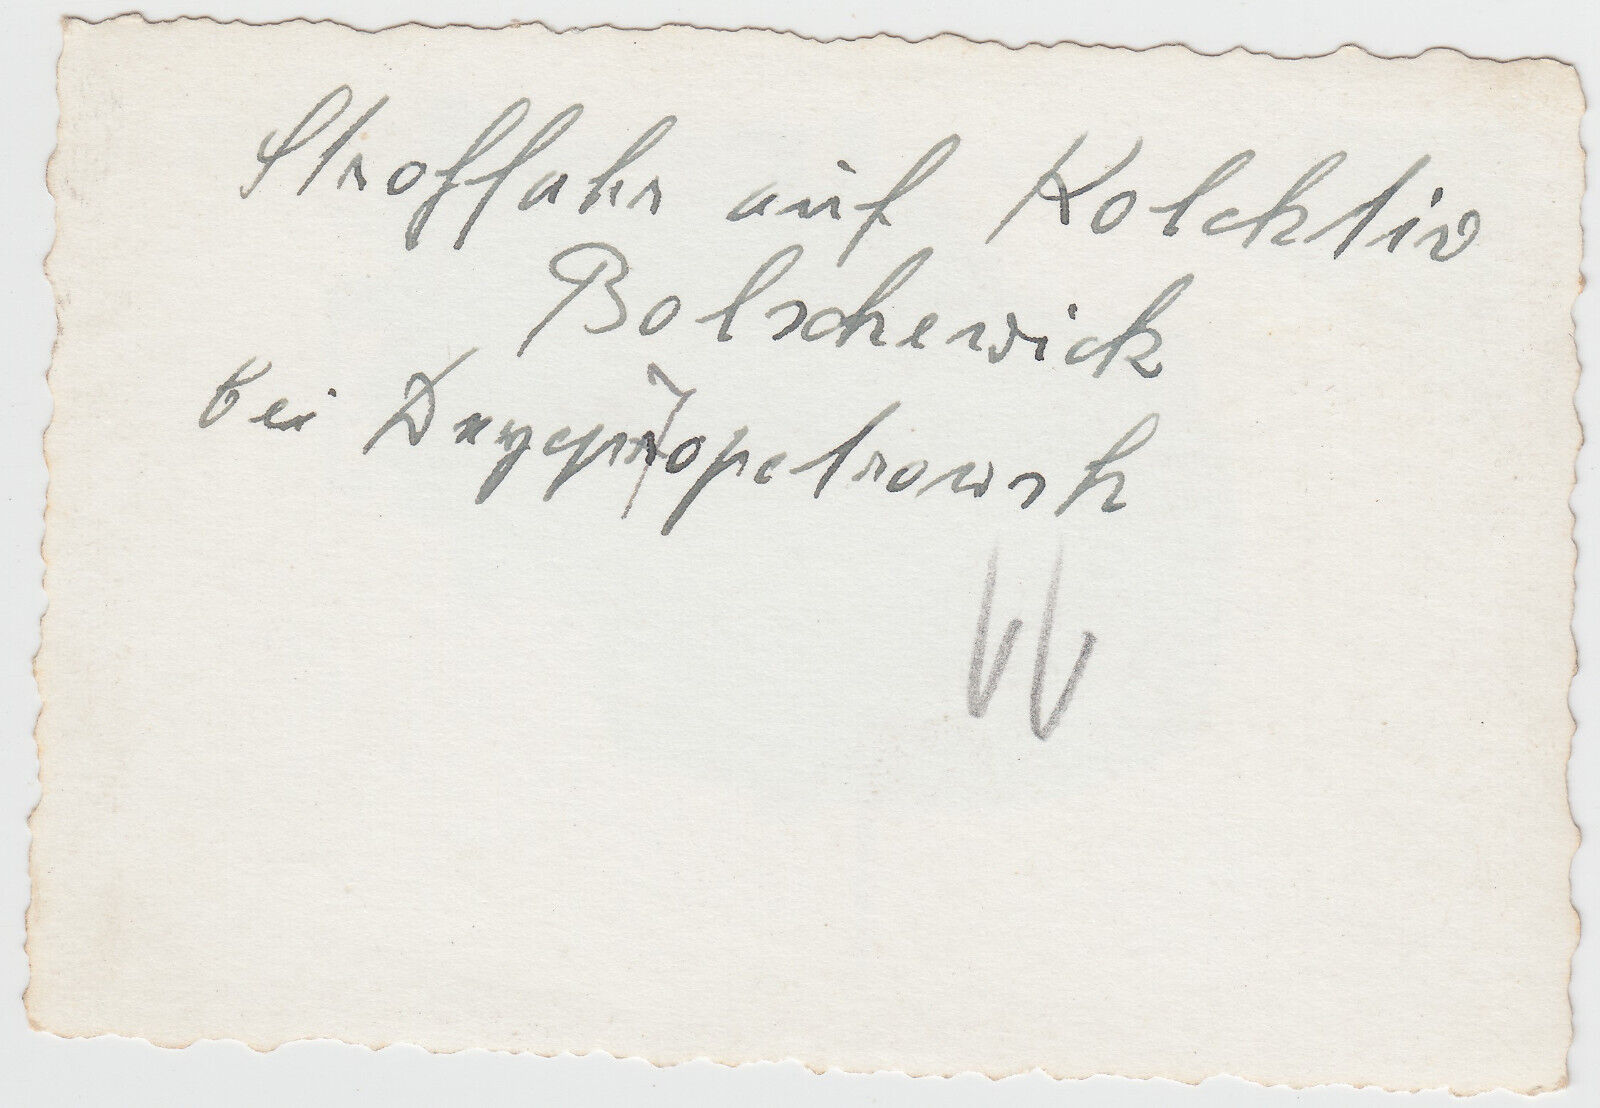 Strohfuhr auf Kolektiv
Bolschewick
bei Dnyepropetrowsk